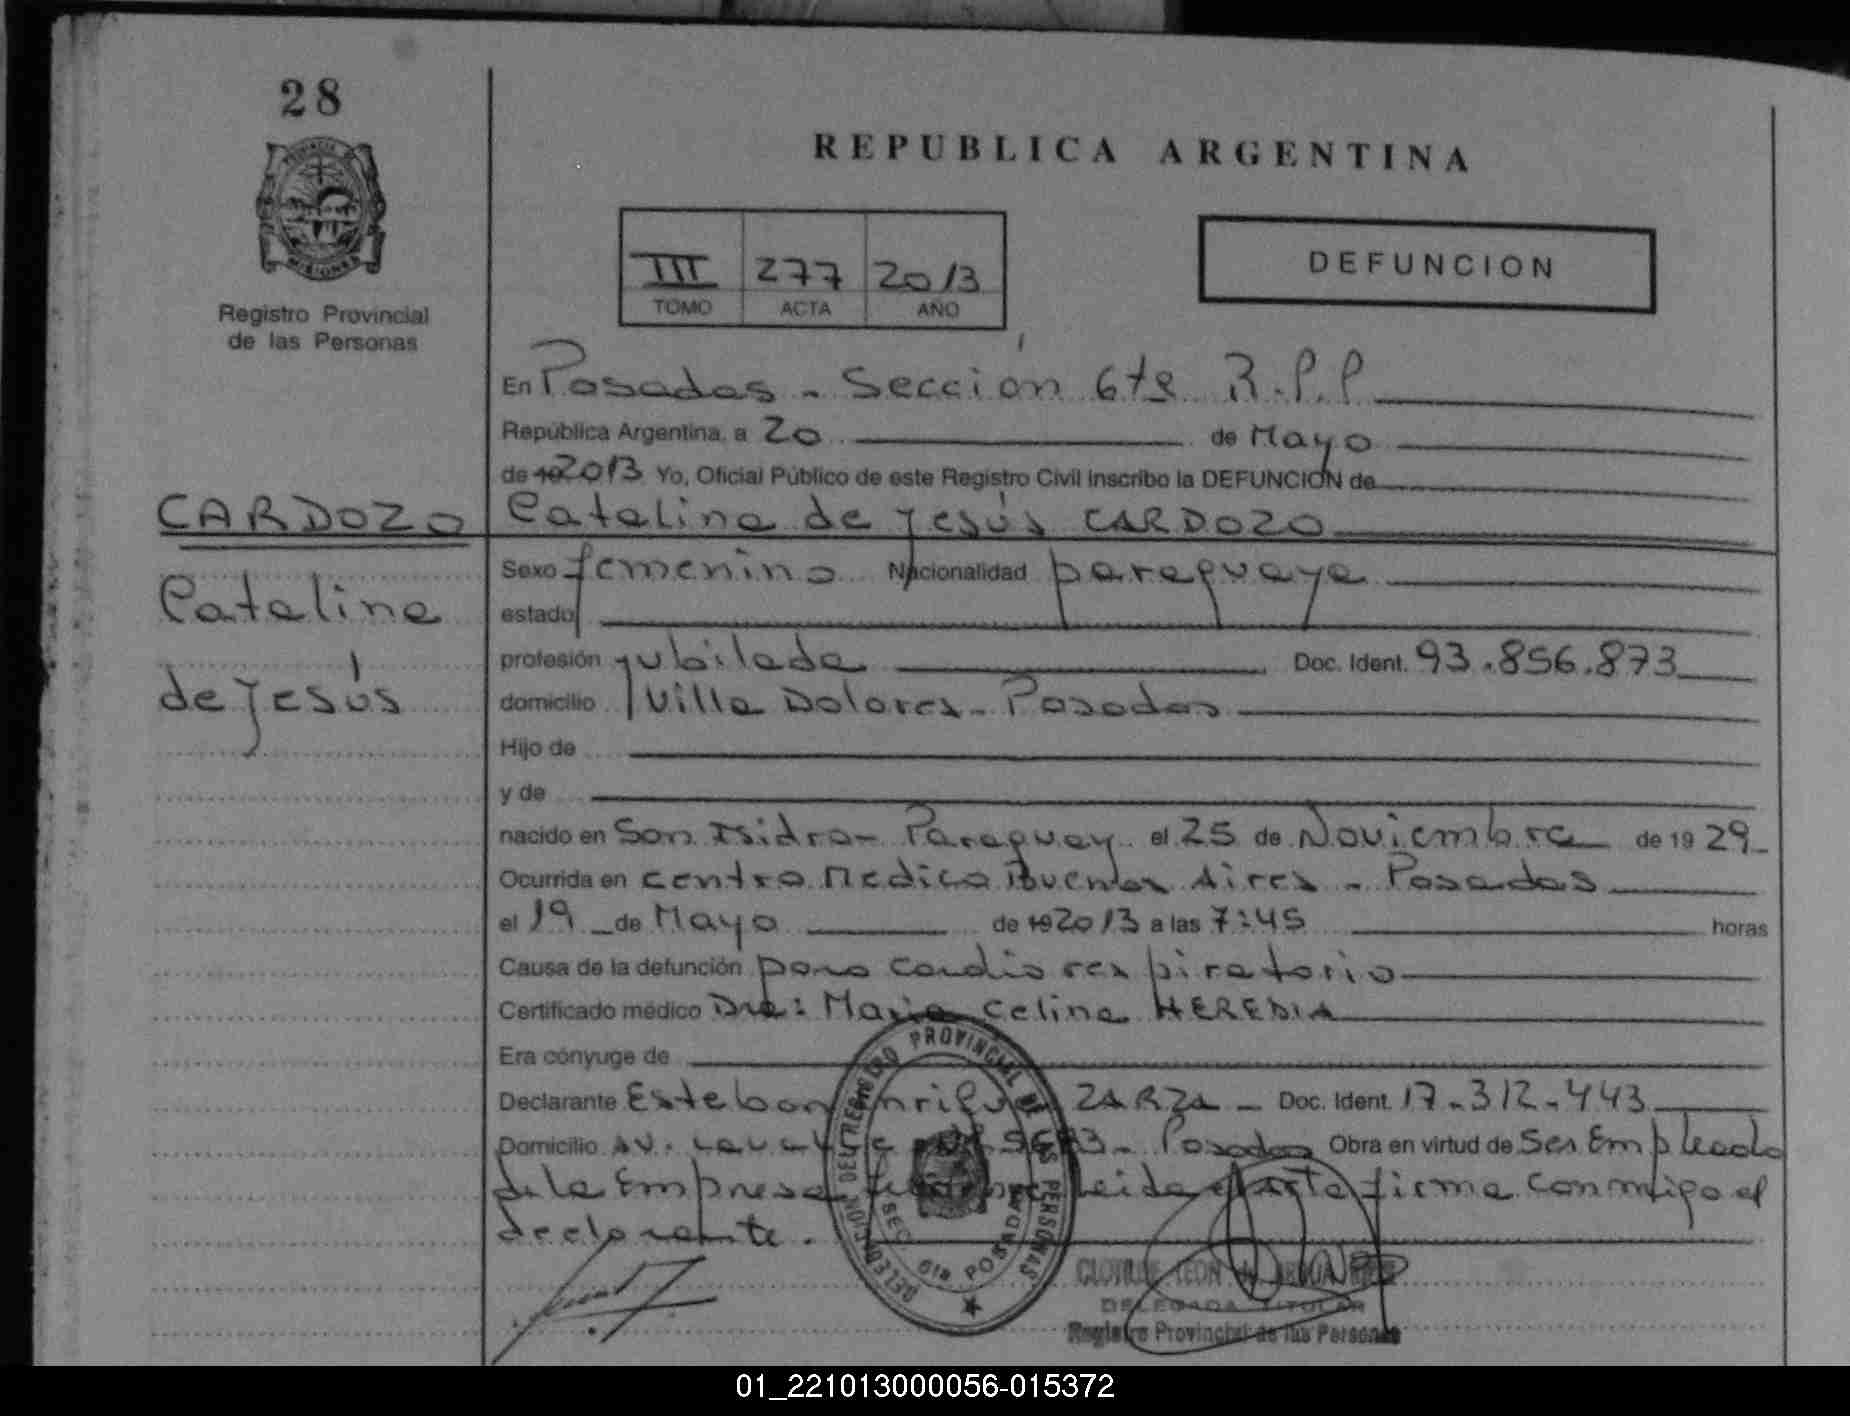 28
PROVINCIA DE
MISIONES
Registro Provincial
de las Personas
REPUBLICA ARGENTINA
III 277 2013
TOMO ACTA AÑO
DEFUNCION
En Posadas - Sección 6ta R.P.P
República Argentina, a 20 de Mayo
de 19 2013 Yo, Oficial Público de este Registro Civil inscribo la DEFUNCION de
CARDOZO
Catalina de Jesús CARDOZO
Catalina
de Jesús
Sexo femenino Nacionalidad paraguaya
estado
profesión jubilada Doc. Ident. 93.856.873
domicilio Villa Dolores - Posadas
Hijo de
y de
nacido en San Isidro - Paraguay el 25 de Noviembre de 19 29
Ocurrida en Centro Medico Buenos Aires - Posadas
el 19 de Mayo de 19 2013 a las 7:45 horas
Causa de la defunción paro cardio respiratorio
Certificado médico Dra: Maria Celina HEREDIA
Era cónyuge de
Declarante Esteban Enrique ZARZA - Doc. Ident. 17.312.443
Domicilio Av. - Posadas Obra en virtud de Ser Empleado
de la Empresa Leida el Acta firma conmigo el
declarante.
DELEGACION DEL REGISTRO PROVINCIAL DE LAS PERSONAS
SEC. 6ta POSADAS
CLOTILDE LEON
DELEGADA TITULAR
Registro Provincial de las Personas
01_221013000056-015372